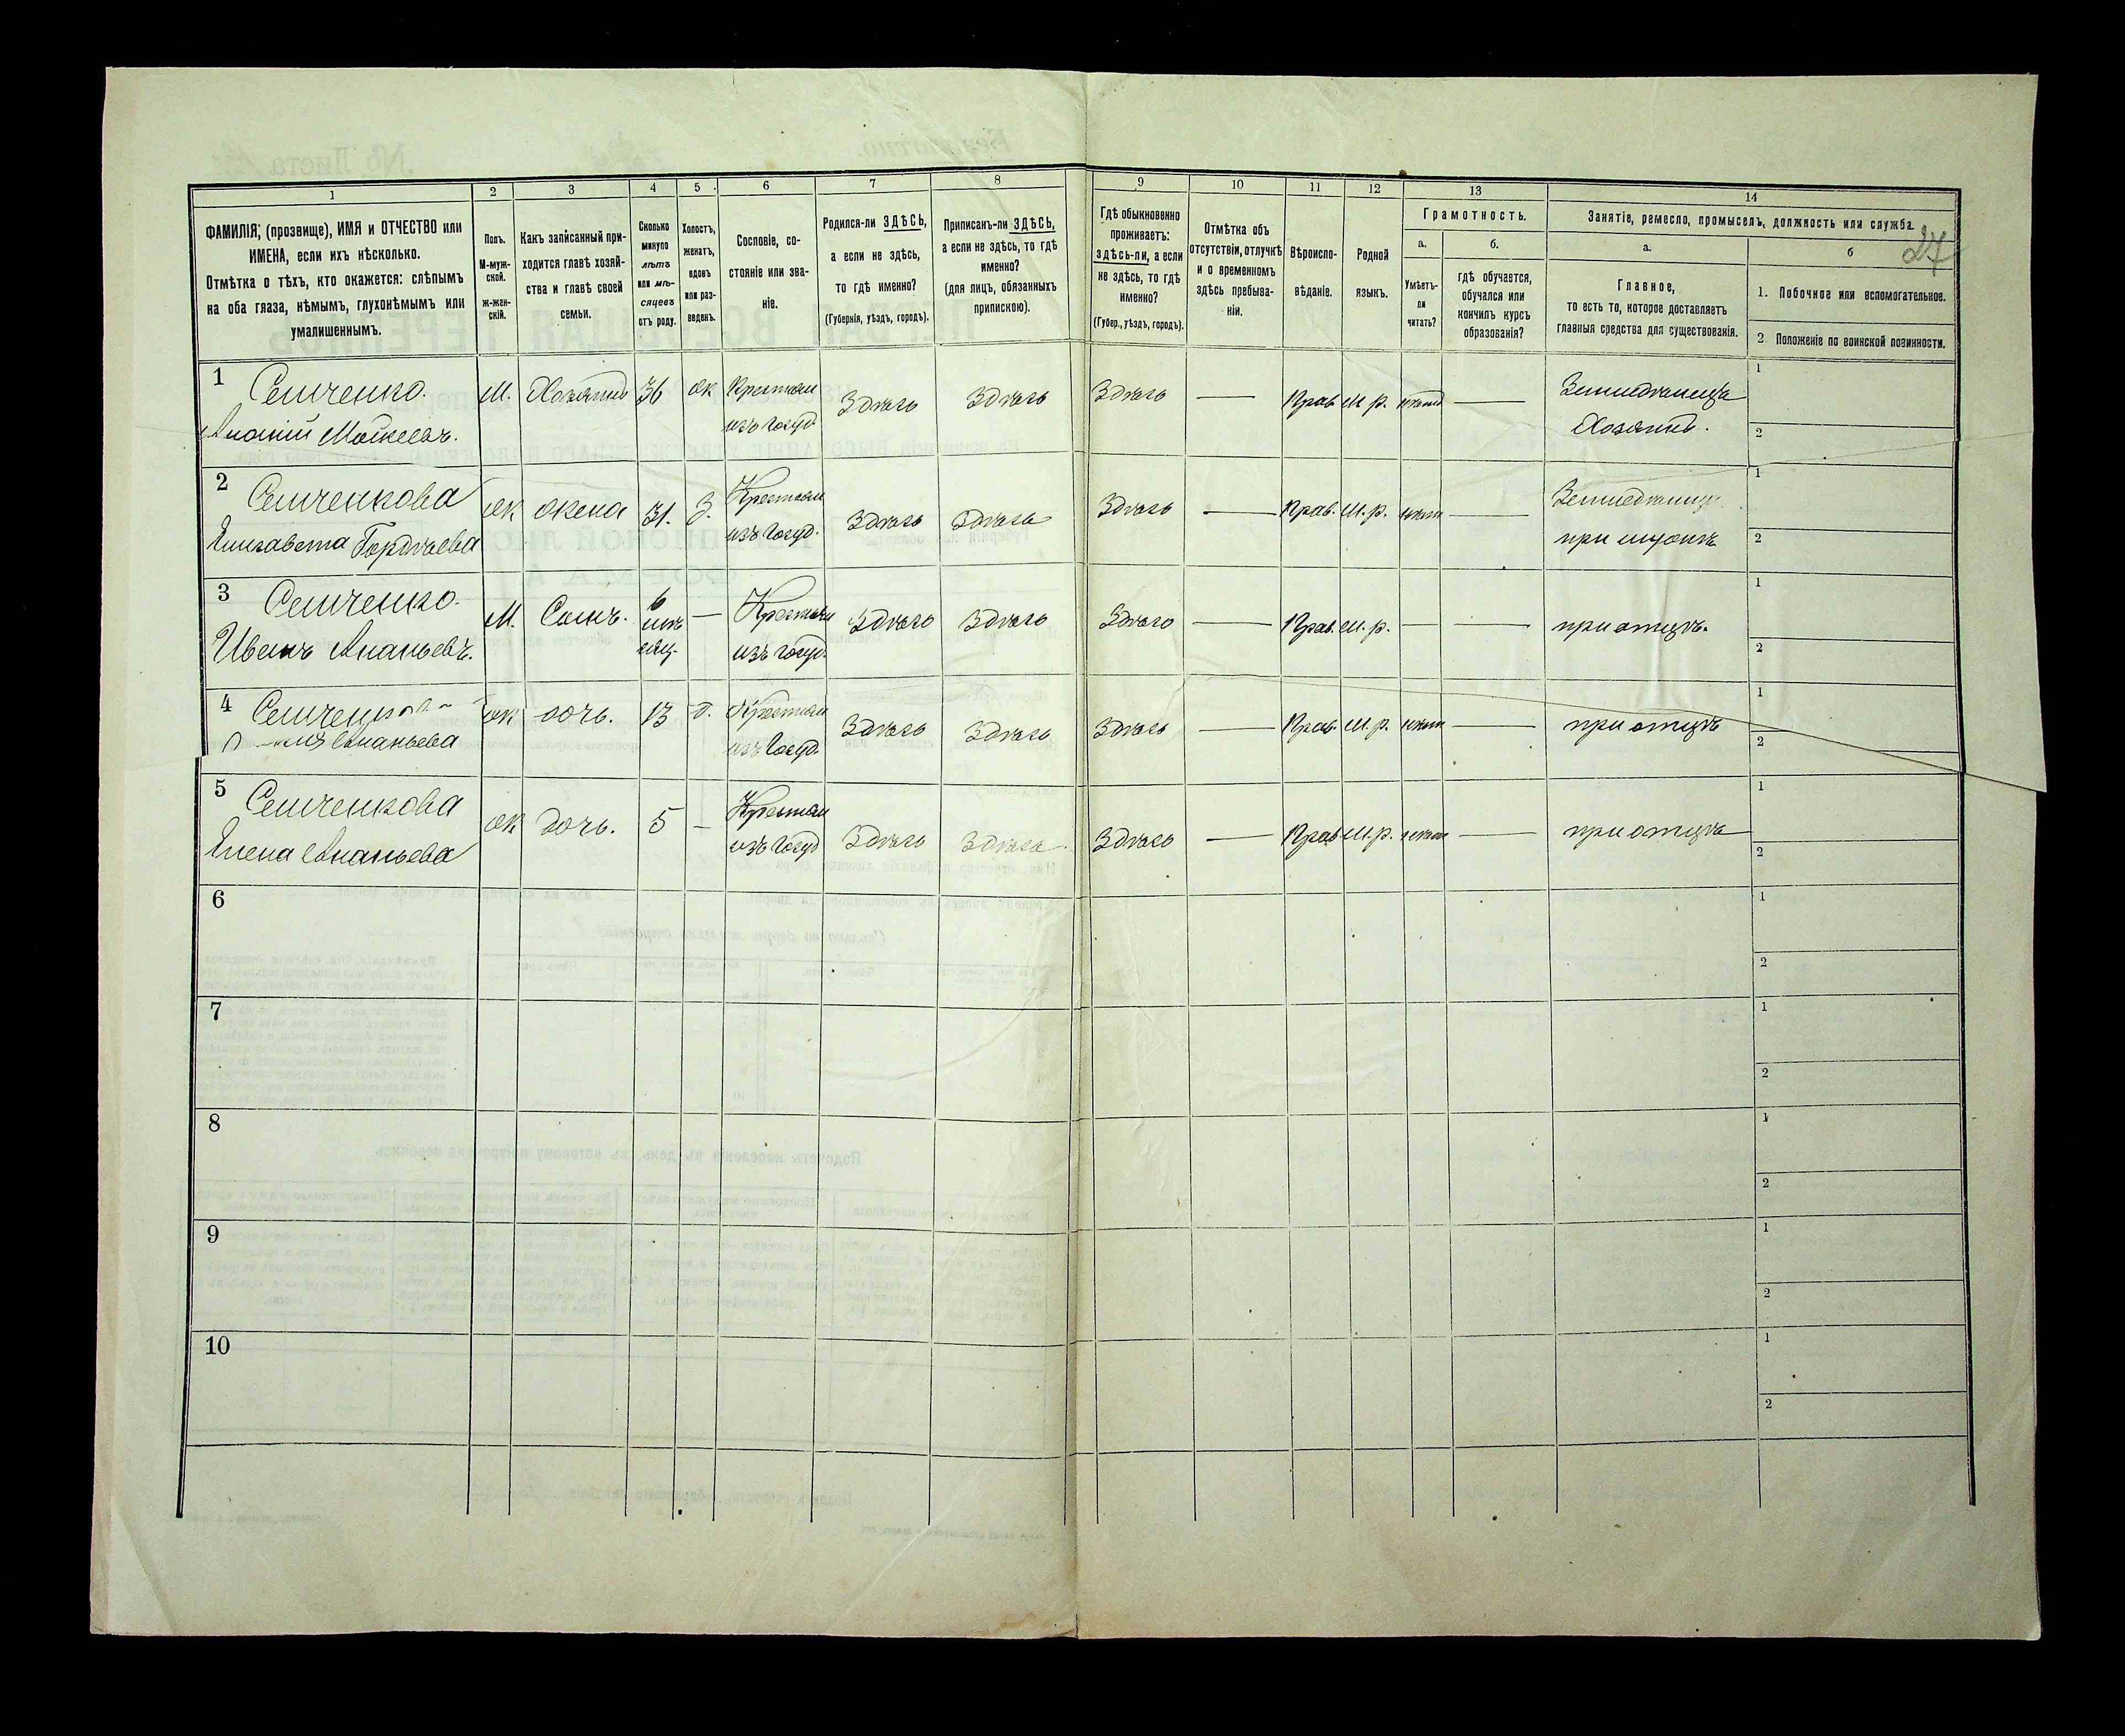 1 2 3 4 5 6 7 8 9 10 11 12 13 14
ФАМИЛІЯ; (прозвище), ИМЯ и ОТЧЕСТВО или
ИМЕНА, если ихъ нѣсколько.
Отмѣтка о тѣхъ, кто окажется: слѣпымъ
на оба глаза, нѣмымъ, глухонѣмымъ или
умалишеннымъ.
Полъ.
М-муж-
ской.
ж-жен-
скій.
Какъ записанный при-
ходится главѣ хозяй-
ства и главѣ своей
семьи.
Сколько
минуло
лѣтъ
или мѣ-
сяцевъ
отъ роду.
Холостъ,
женатъ,
вдовъ
или раз-
веденъ.
Сословіе, со-
стояніе или зва-
ніе.
Родился-ли ЗДѢСЬ,
а если не здѣсь,
то гдѣ именно?
(Губернія, уѣздъ, городъ).
Приписанъ-ли ЗДѢСЬ,
а если не здѣсь, то гдѣ
именно?
(для лицъ, обязанныхъ
припискою).
Гдѣ обыкновенно
проживаетъ:
здѣсь-ли, а если
не здѣсь, то гдѣ
именно?
(Губер., уѣздъ, городъ).
Отмѣтка объ
отсутствіи, отлучкѣ
и о временномъ
здѣсь пребыва-
ніи.
Вѣроиспо-
вѣданіе.
Родной
языкъ.
Грамотность.
а.
Умѣетъ-
ли
читать?
б.
гдѣ обучается,
обучался или
кончилъ курсъ
образованія?
Занятіе, ремесло, промыселъ, должность или служба.
27
а.
Главное,
то есть то, которое доставляетъ
главныя средства для существованія.
б
1. Побочное или вспомогательное.
2 Положеніе по воинской повинности.
1 Семченко. М. Хозяинъ 36 ж Крестьян Здѣсь Здѣсь Здѣсь — Прав М р. — Земледѣлецъ 1
Ананій Моисеевъ. изъ госуд. Хозяинъ. 2
2 Семченкова ж жена 31. З. Крестьян Здѣсь Здѣсь Здѣсь — Прав. М. р. — 1
Елисавета Гордѣева изъ госуд. при мужѣ 2
3 Семченко. М. Сынъ. 6 — Крестьян Здѣсь Здѣсь Здѣсь — Прав. М. р. — — при отцѣ. 1
Иванъ Ананьевъ. мѣ сяц. изъ госуд. 2
4 ж дочь. 13 Крестьян Здѣсь Здѣсь Здѣсь — Прав. М. р. — при отцѣ 1
Ананьева изъ госуд. 2
5 Семченкова ж дочь. 5 — Крестьян Здѣсь Здѣсь Здѣсь — Прав М. р. — при отцѣ 1
Елена Ананьева изъ госуд 2
6 1
2
7 1
2
8 1
2
9 1
2
10 1
2